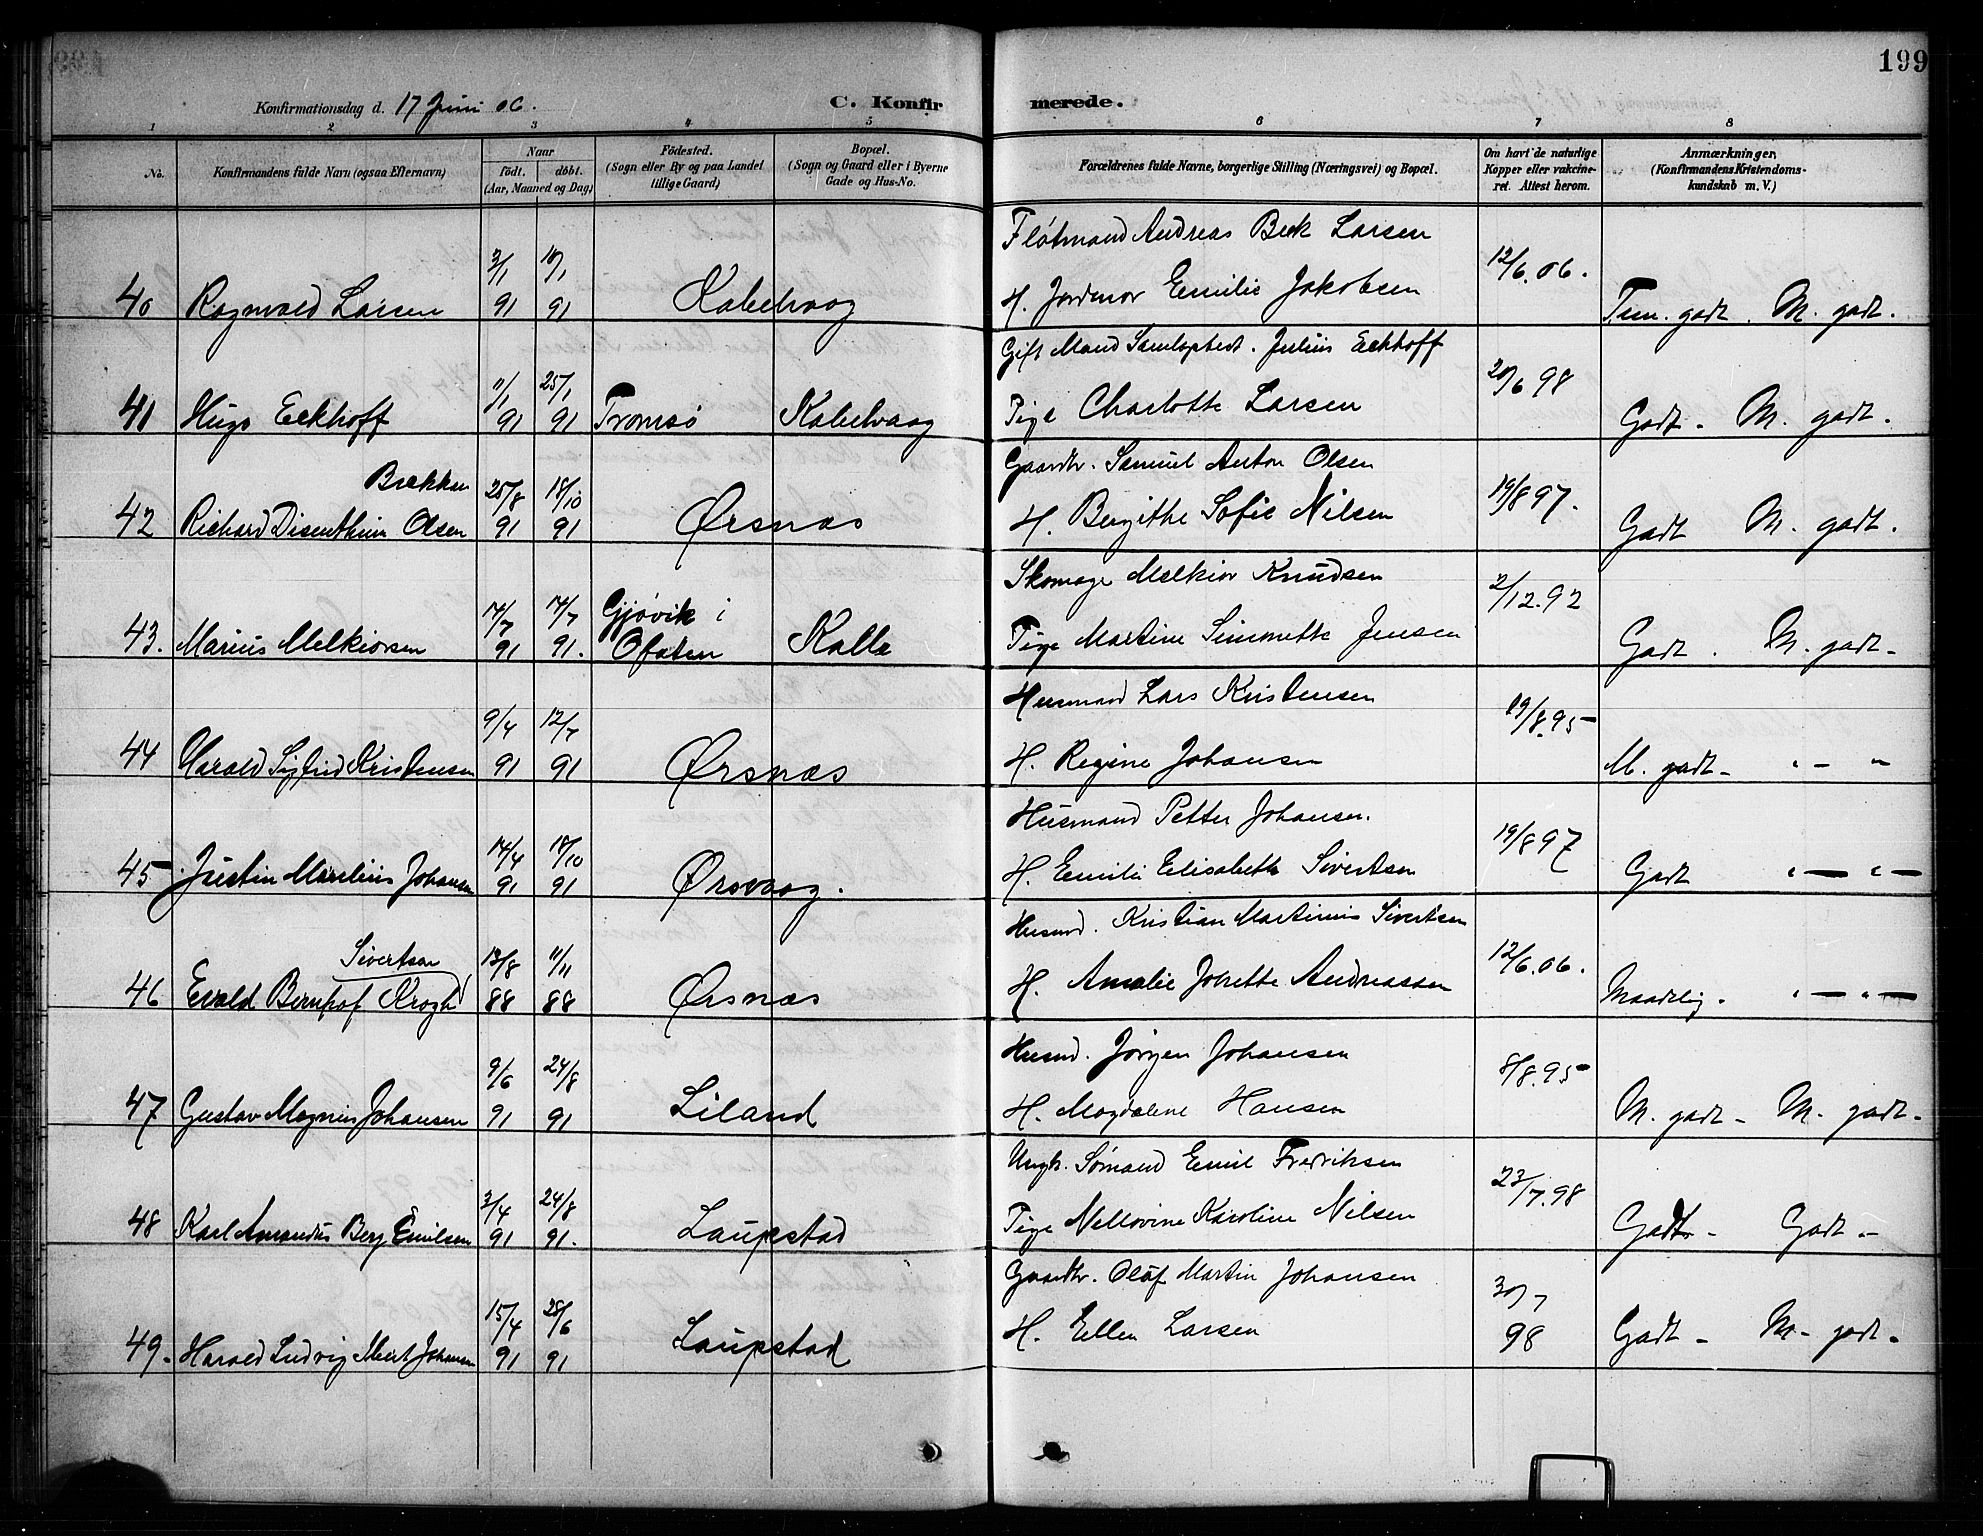 199
Konfirmationsdag d. 17 Juni 06.
C. Konfirmerede.
1 2 3 4 5 6 7 8
No.
Konfirmandens fulde Navn (ogsaa Efternavn)
Naar
födt. döbt.
(Aar, Maaned og Dag)
Födested.
(Sogn eller By og paa Landet
tillige Gaard)
Bopæl.
(Sogn og Gaard eller i Byerne
Gade og Hus-No.
Forældrenes fulde Navne, borgerlige Stilling (Næringsvei) og Bopæl.
Om havt de naturlige
Kopper eller vakcine-
ret. Attest herom.
Anmærkninger,
(Konfirmandens Kristendoms-
kundskab m. V.)
40 Ragnvald Larsen 3/1 91 91 Kabelvaag
Flötmand Andreas Beck Larsen
H. Jordmor Emilie Jakobsen
12/6.06. Tem. godt. M. godt.
41 Hugo Eckhoff 11/1 91 25/1 91 Tromsö Kabelvaag
Gift Mand Julius Eckhoff
Pige Charlotte Larsen
20/6 98 Godt. M. godt.
42 Richard Disenthim Olsen Brekken 25/8 91 18/10 91 Ørsnæs
Gaardbr. Samuel Anton Olsen
H. Bergithe Sofie Nilsen
19/8 97. Godt M. godt.
43. Marius Melkiorsen 14/7 91 17/7 91. Gjövik i Ofoten Kalle
Skomager Melkior Knudsen
Pige Martine Simonette Jensen
2/12.92 Godt. M. godt.
44 Harald Sigfrid Kristensen 9/4 91 12/7 91 Ørsnæs
Husmand Lars Kristensen
H. Regine Johansen
19/8.95 M. godt. " - "
45 Justin Marelius Johansen 14/4 91 18/10 91 Ørsvaag.
Husmand Petter Johansen.
H. Emilie Elisabeth Sivertsen
19/8 97 Godt " — " —
46 Evald Bernhof Krogh Sivertsen 13/8 88 11/11 88 Ørsnæs
Husmd. Kristian Martinus Sivertsen
H. Amalie Jonette Andreassen
12/6.06. Maadelig. " — " —
47 Gustav Magnus Johansen 9/6 91 24/8 91 Liland
Husmd. Jörgen Johansen
H. Magdalene Hansen
8/8.95 M. godt - M. godt.
48 Karl Amandus Berg Emilsen 3/4 91 24/8 91. Laupstad
Ungk. Sömand Emil Fredriksen
Pige Nellovine Karoline Nilsen
23/7.98 Godt - Godt -
49. Harald Ludvig Johansen 15/4 91 28/6 91 Laupstad
Gaardbr. Oluf Martin Johansen
H. Ellen Larsen
30/7 98 Godt - M. godt.